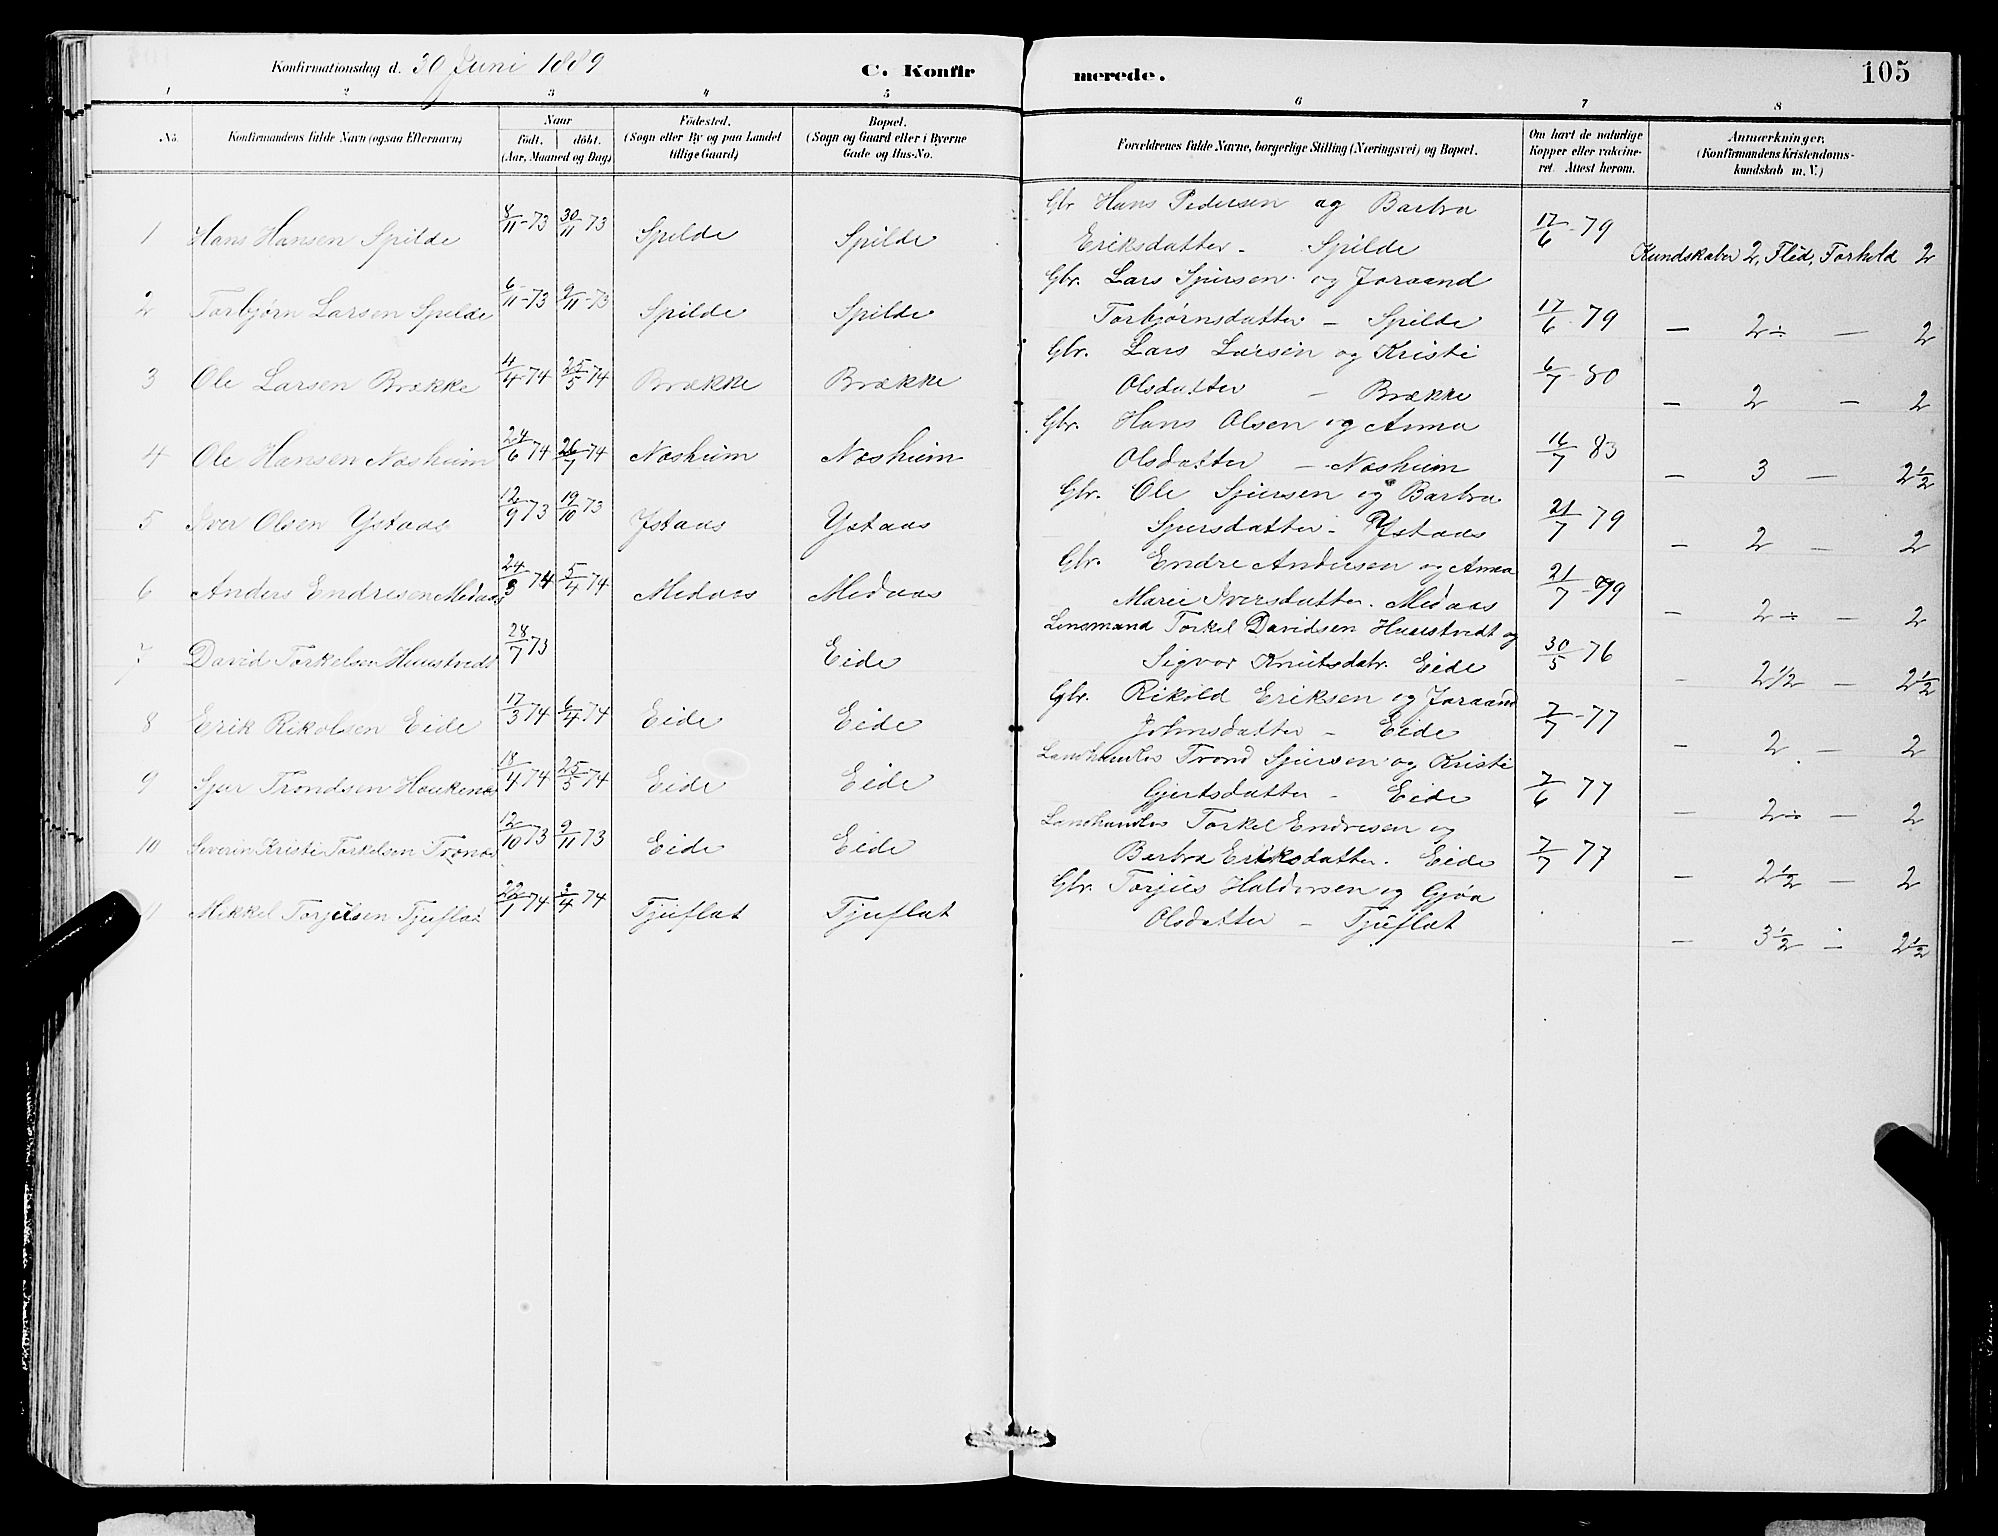 Konfirmationsdag d. 30 Juni 1889 C. Konfirmerede. 105
1 2 3 4 5 6 7 8
No. Konfirmandens fulde Navn (ogsaa Efternavn) Naar födt. döbt. (Aar, Maaned og Dag) Födested. (Sogn eller By og paa Landet tillige Gaard) Bopæl. (Sogn og Gaard eller i Byerne Gade og Hus-No. Forældrenes fulde Navne, borgerlige Stilling (Næringsvei) og Bopæl. Om havt de naturlige Kopper eller vakcineret. Attest herom. Anmærkninger. (Konfirmandens Kristendomskundskab m. V.)
1 Hans Hansen Spilde 8/11-73 30/11 73 Spilde Spilde Gbr Hans Pedersen og Barbra Eriksdatter - Spilde 17/6-79 Kundskaber 2, Flid, Forhold 2
2 Torbjørn Larsen Spilde 6/11-73 9/11-73 Spilde Spilde Gbr. Lars Sjursen og Joraand Torbjørnsdatter - Spilde 17/6-79 — 2÷ — 2
3 Ole Larsen Brække 4/4-74 25/5 74 Brække Brække Gbr. Lars Larsen og Kristi Olsdatter - Brække 6/7-80 — 2 — 2
4 Ole Hansen Næsheim 24/6 74 26/7 74 Næsheim Næsheim Gbr. Hans Olsen og Anna Olsdatter - Næsheim 16/7 83 — 3 — 2½
5 Iver Olsen Ystaas 12/9 73 19/10 73 Ystaas Ystaas Gbr. Ole Sjursen og Barbra Sjursdatter - Ystaas 21/7 79 — 2 — 2
6 Anders Endresen Medaas 24/3 74 5/4 74 Medaas Medaas Gbr. Endre Andersen og Anna Marie Iversdatter. Medaas 21/7-79 — 2÷ — 2
7 David Torkelsen Huustvedt 28/7 73 Eide Lensmand Torkel Davidsen Huustvedt og Sigvor Knutsdatr. Eide 30/5-76 - 2½ — 2½
8 Erik Rikolsen Eide 17/3 74 6/4 74 Eide Eide Gbr. Rikold Eriksen og Joraand Johnsdatter - Eide 7/7-77 - 2 — 2
9 Sjur Trondsen Haukenæs 18/4 74 25/5 74 Eide Eide Landhandler Trond Sjursen og Kristi Gjertsdatter - Eide 7/6 77 — 2÷ — 2
10 Severin Kristi Torkelsen Tronæs 12/10 73 9/11 73 Eide Eide Landhandler Torkel Endresen og Barbra Eriksdatter. Eide 7/7 77 — 2½ — 2
11 Mikkel Torjusen Tjuflat 22/1 74 74 Tjuflat Tjuflat Gbr. Torjus Haldorsen og Gjøa Olsdatter - Tjuflat — 3½ — 2½